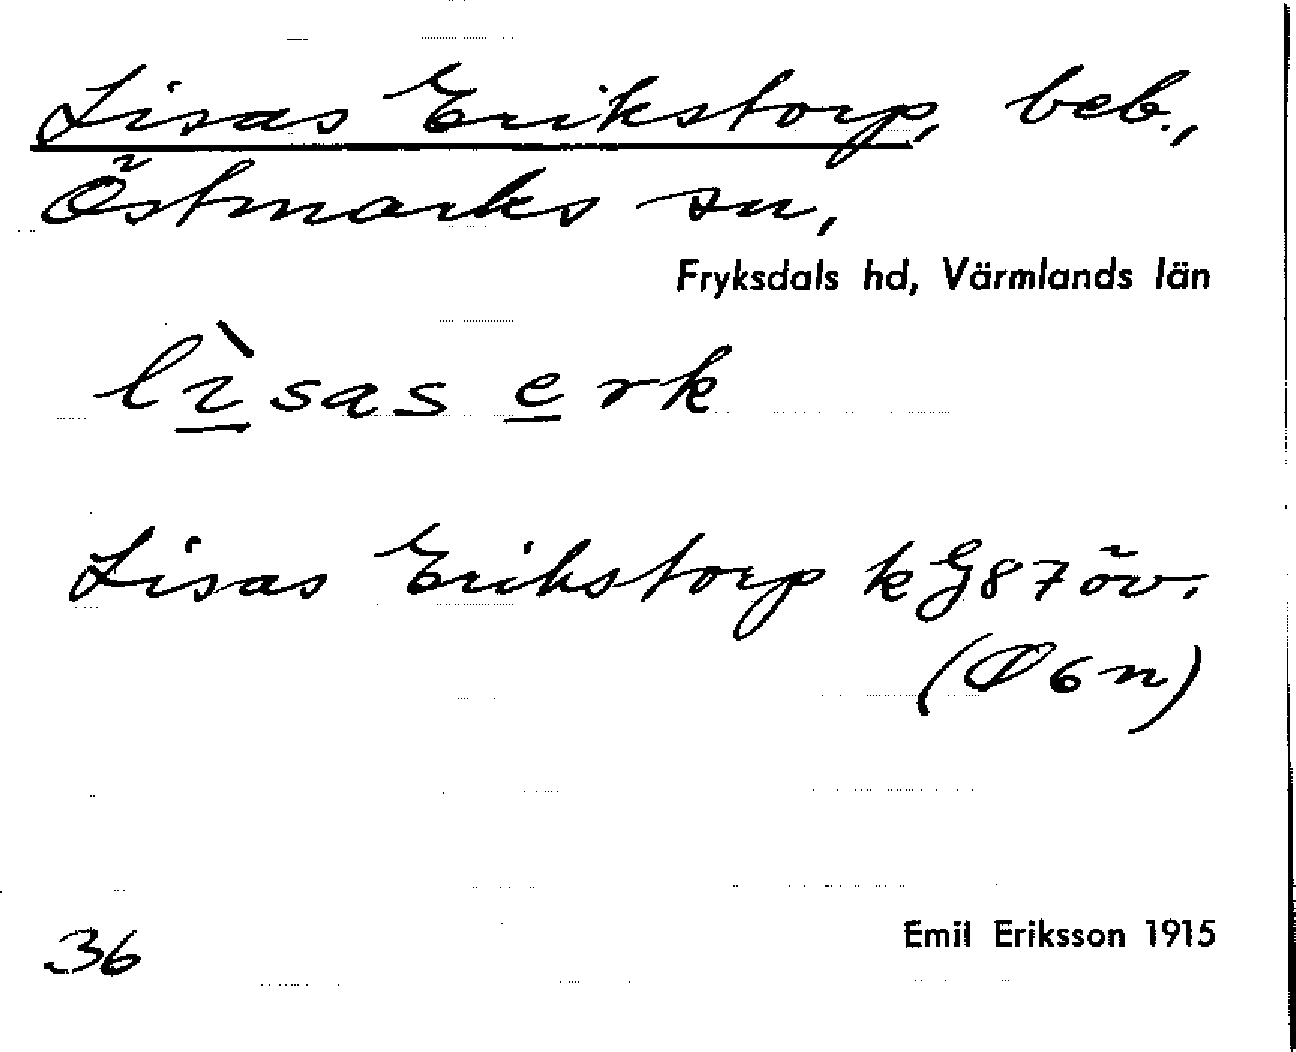 Lisas Erikstorp, beb.,
Östmarks sn,
Fryksdals hd, Värmlands län
lìsas erk
Lisas Erikstorp k G87öv.
(Ø6n)
36
Emil Eriksson 1915